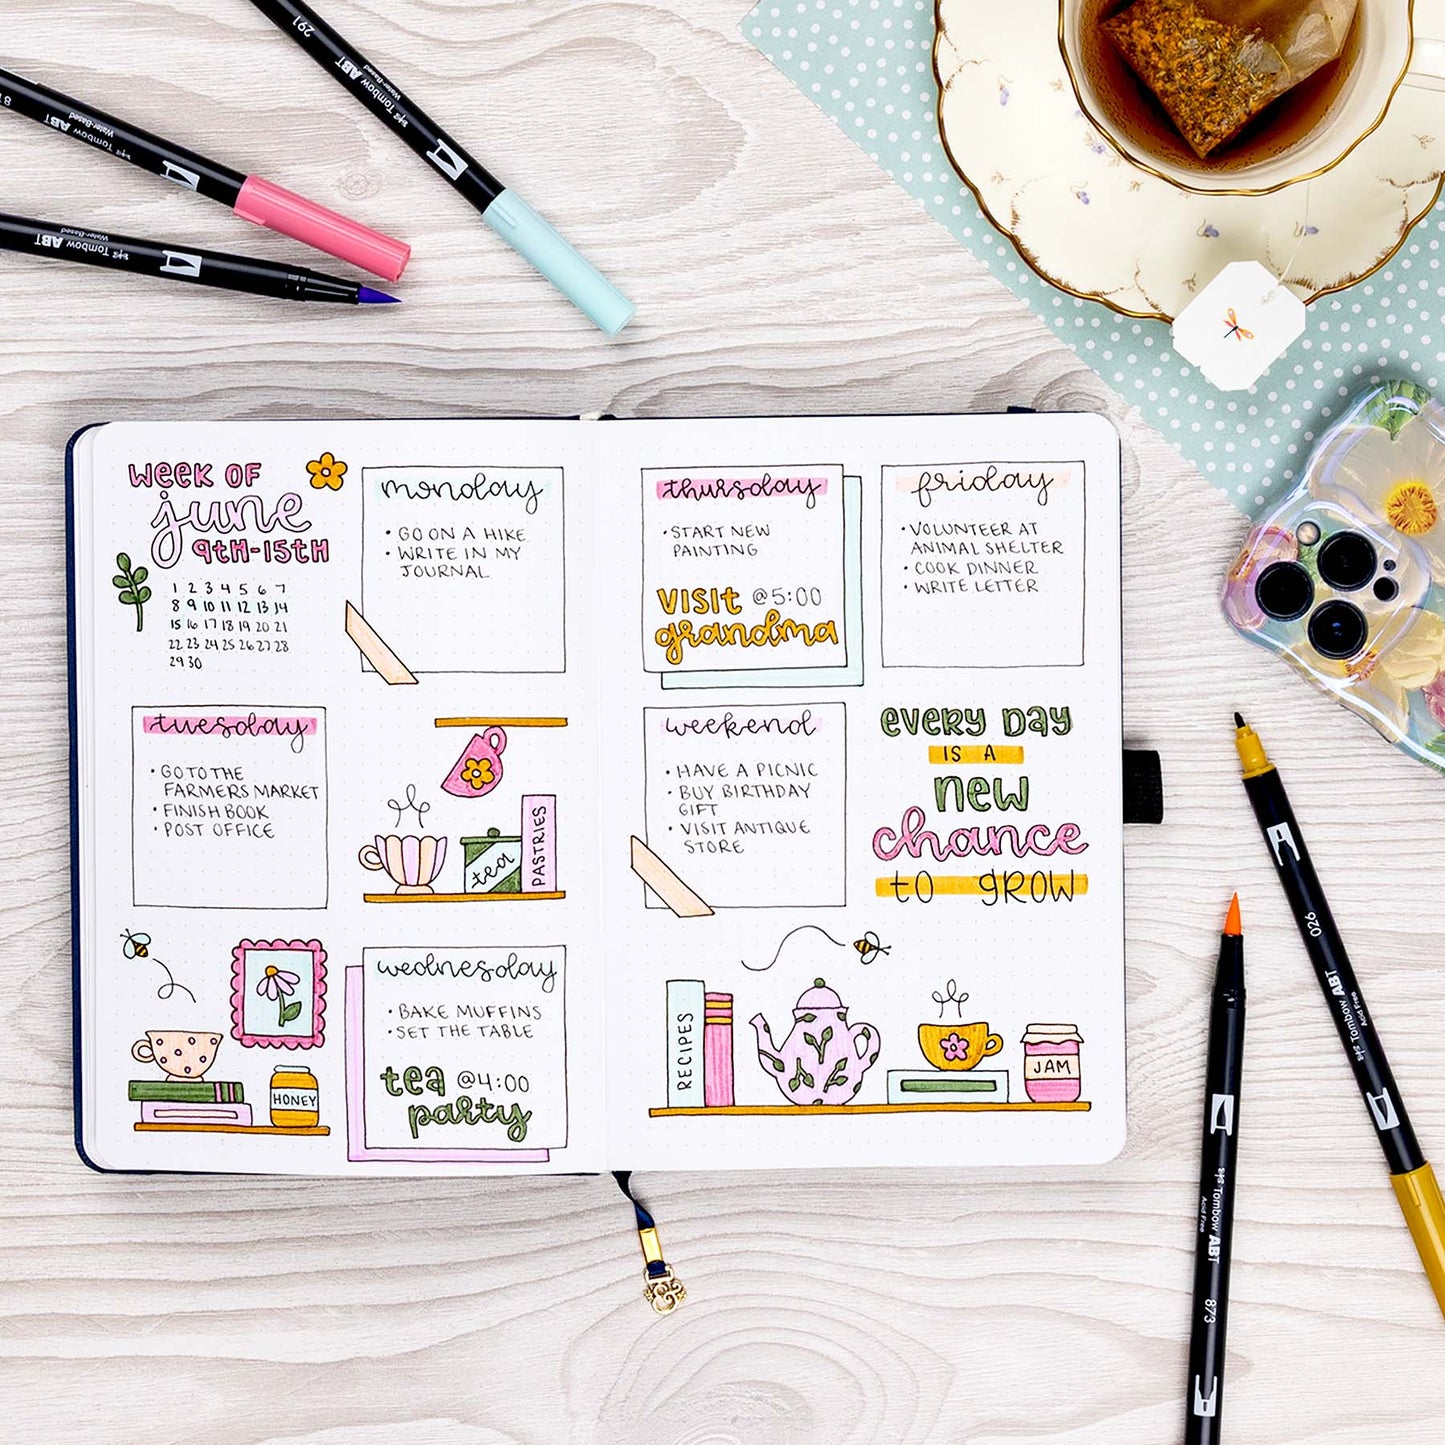 291
Tombow ABT
Water-Based
Tombow ABT
Water-Based
Tombow ABT
Water-Based
WEEK OF
june
9tH-15tH
1 2 3 4 5 6 7
8 9 10 11 12 13 14
15 16 17 18 19 20 21
22 23 24 25 26 27 28
29 30
monday
• GO ON A HIKE
• WRITE IN MY
JOURNAL
tuesday
• GO TO THE
FARMERS MARKET
• FINISH BOOK
• POST OFFICE
tea
PASTRIES
HONEY
wednesday
• BAKE MUFFINS
• SET THE TABLE
tea @4:00
party
thursday
• START NEW
PAINTING
VISIt @5:00
grandma
friday
• VOLUNTEER AT
ANIMAL SHELTER
• COOK DINNER
• WRITE LETTER
weekend
• HAVE A PICNIC
• BUY BIRTHDAY
GIFT
• VISIT ANTIQUE
STORE
eVeRY DaY
IS A
new
chance
to gROW
RECIPES
JAM
026
Tombow ABT
Acid Free
Tombow ABT
Acid Free
873